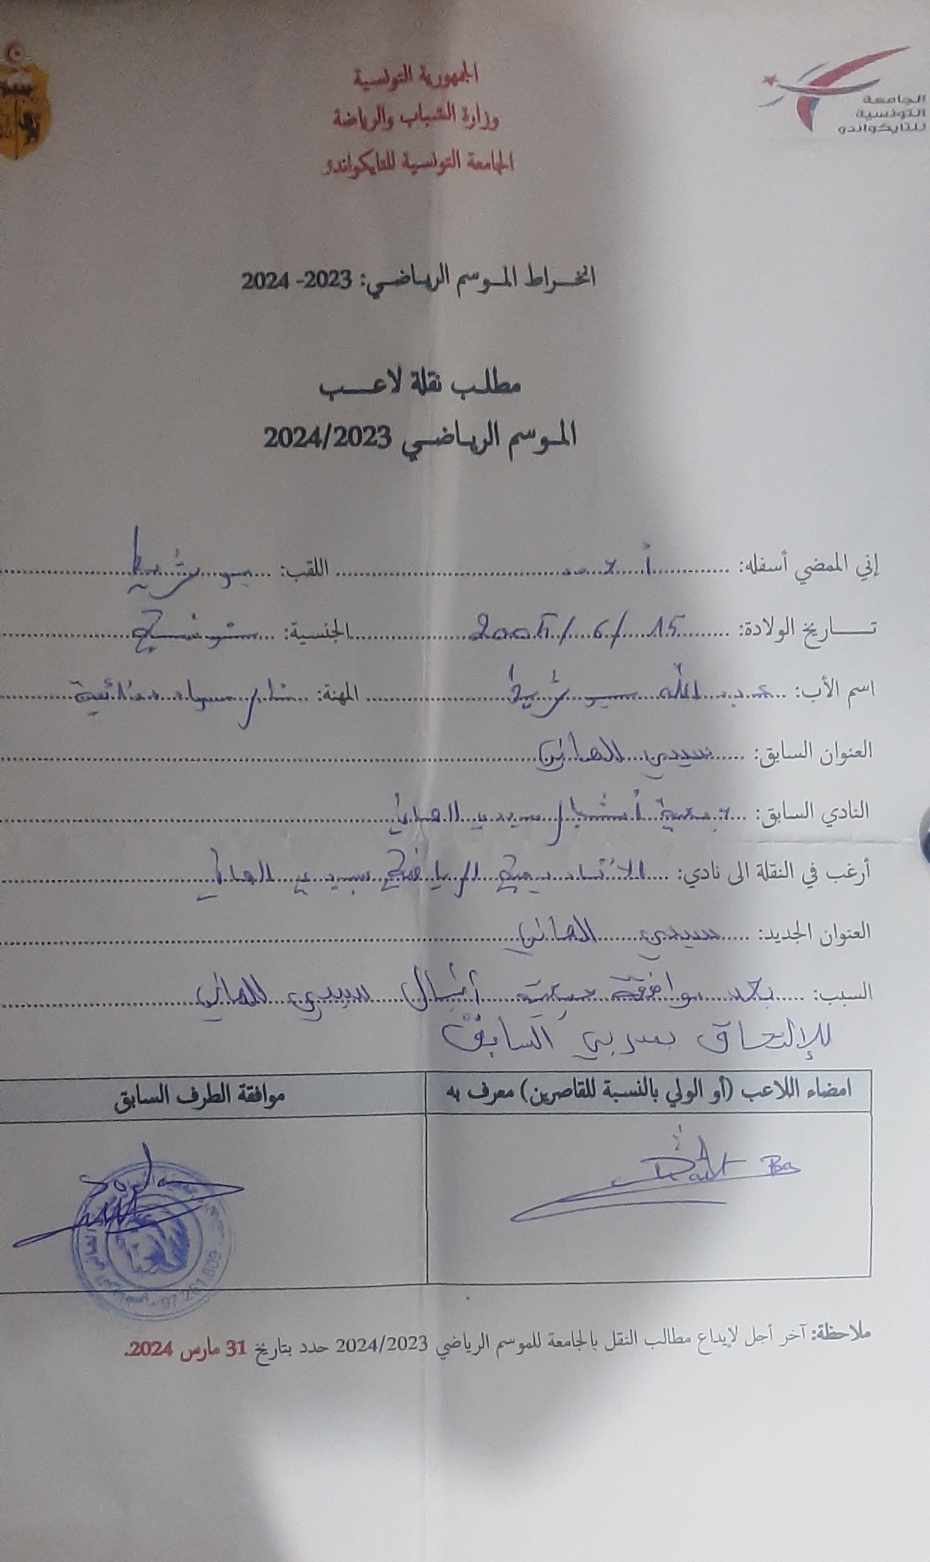 الجمهورية التونسية
وزارة الشباب والرياضة
الجامعة التونسية للتايكواندو
الجامعة
التونسية
للتايكواندو
انخراط الموسم الرياضي: 2023- 2024
مطلب نقلة لاعب
الموسم الرياضي 2024/2023
إني الممضي أسفله: أحمد اللقب: بوثريط
تاريخ الولادة: 15/6/ الجنسية: تونسي
اسم الأب: عبد الله المهنة:
العنوان السابق: سيدي الهاني
النادي السابق: جمعية أشبال سيدي الهاني
أرغب في النقلة الى نادي: الاتحاد الرياضي سيدي الهاني
العنوان الجديد: سيدي الهاني
السبب: بعد موافقة جمعية أشبال سيدي الهاني
للإلتحاق بمدربي السابق
امضاء اللاعب (أو الولي بالنسبة للقاصرين) معرف به
موافقة الطرف السابق
ملاحظة: آخر أجل لإيداع مطالب النقل بالجامعة للموسم الرياضي 2024/2023 حدد بتاريخ 31 مارس 2024.